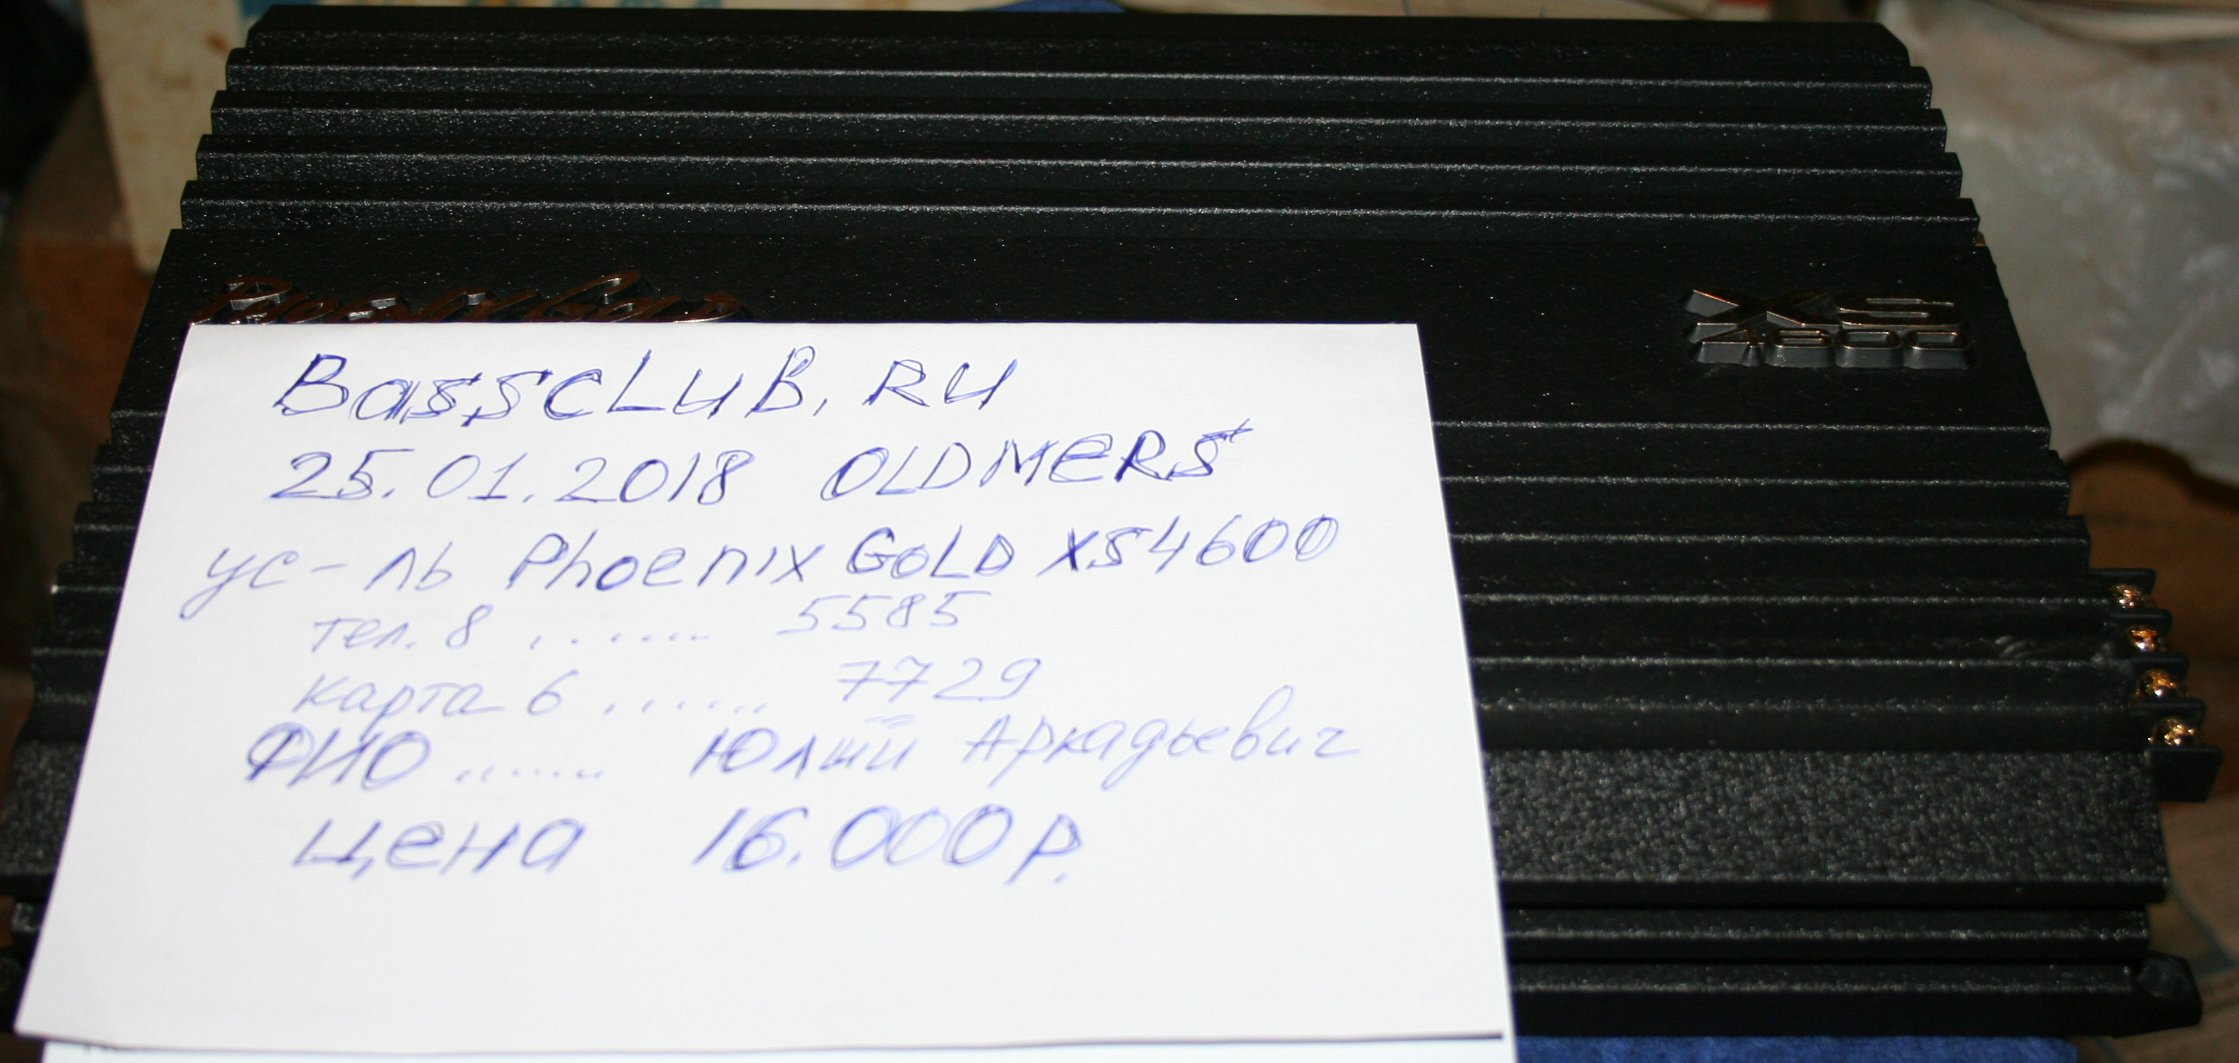 Phoenix Gold
XS
4600
BassCLUB.RU
25.01.2018 OLDMERS
ус-ль Phoenix GoLD XS4600
тел. 8 ........ 5585
карта 6 ....... 7729
ФИО ....... Юлий Аркадьевич
цена 16.000р.